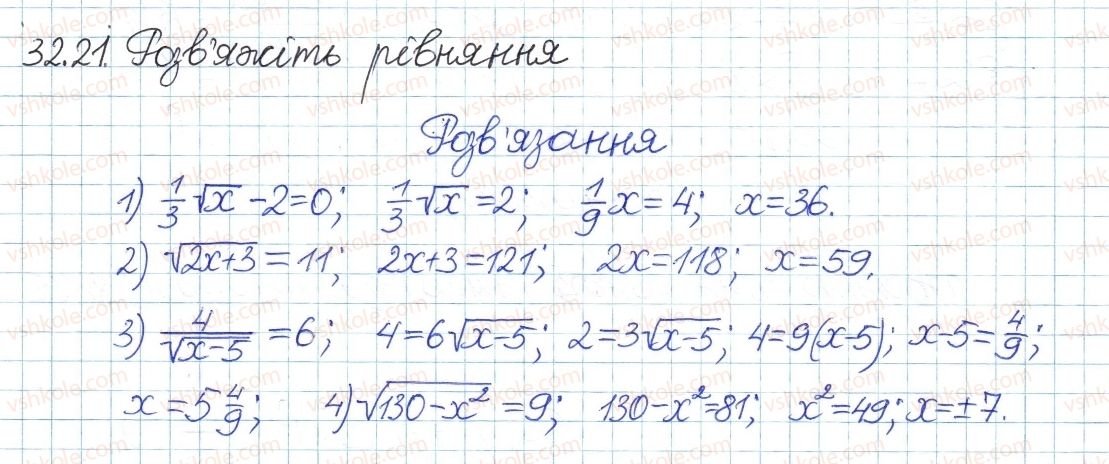 32.21. Розв'яжіть рівняння
Розв'язання
1) 1/3 √x - 2 = 0; 1/3 √x = 2; 1/9 x = 4; x = 36.
2) √(2x+3) = 11; 2x+3 = 121; 2x = 118; x = 59.
3) 4/√(x-5) = 6; 4 = 6√(x-5); 2 = 3√(x-5); 4 = 9(x-5); x-5 = 4/9;
x = 5 4/9; 4) √(130-x²) = 9; 130-x² = 81; x² = 49; x = ±7.
vshkole.com